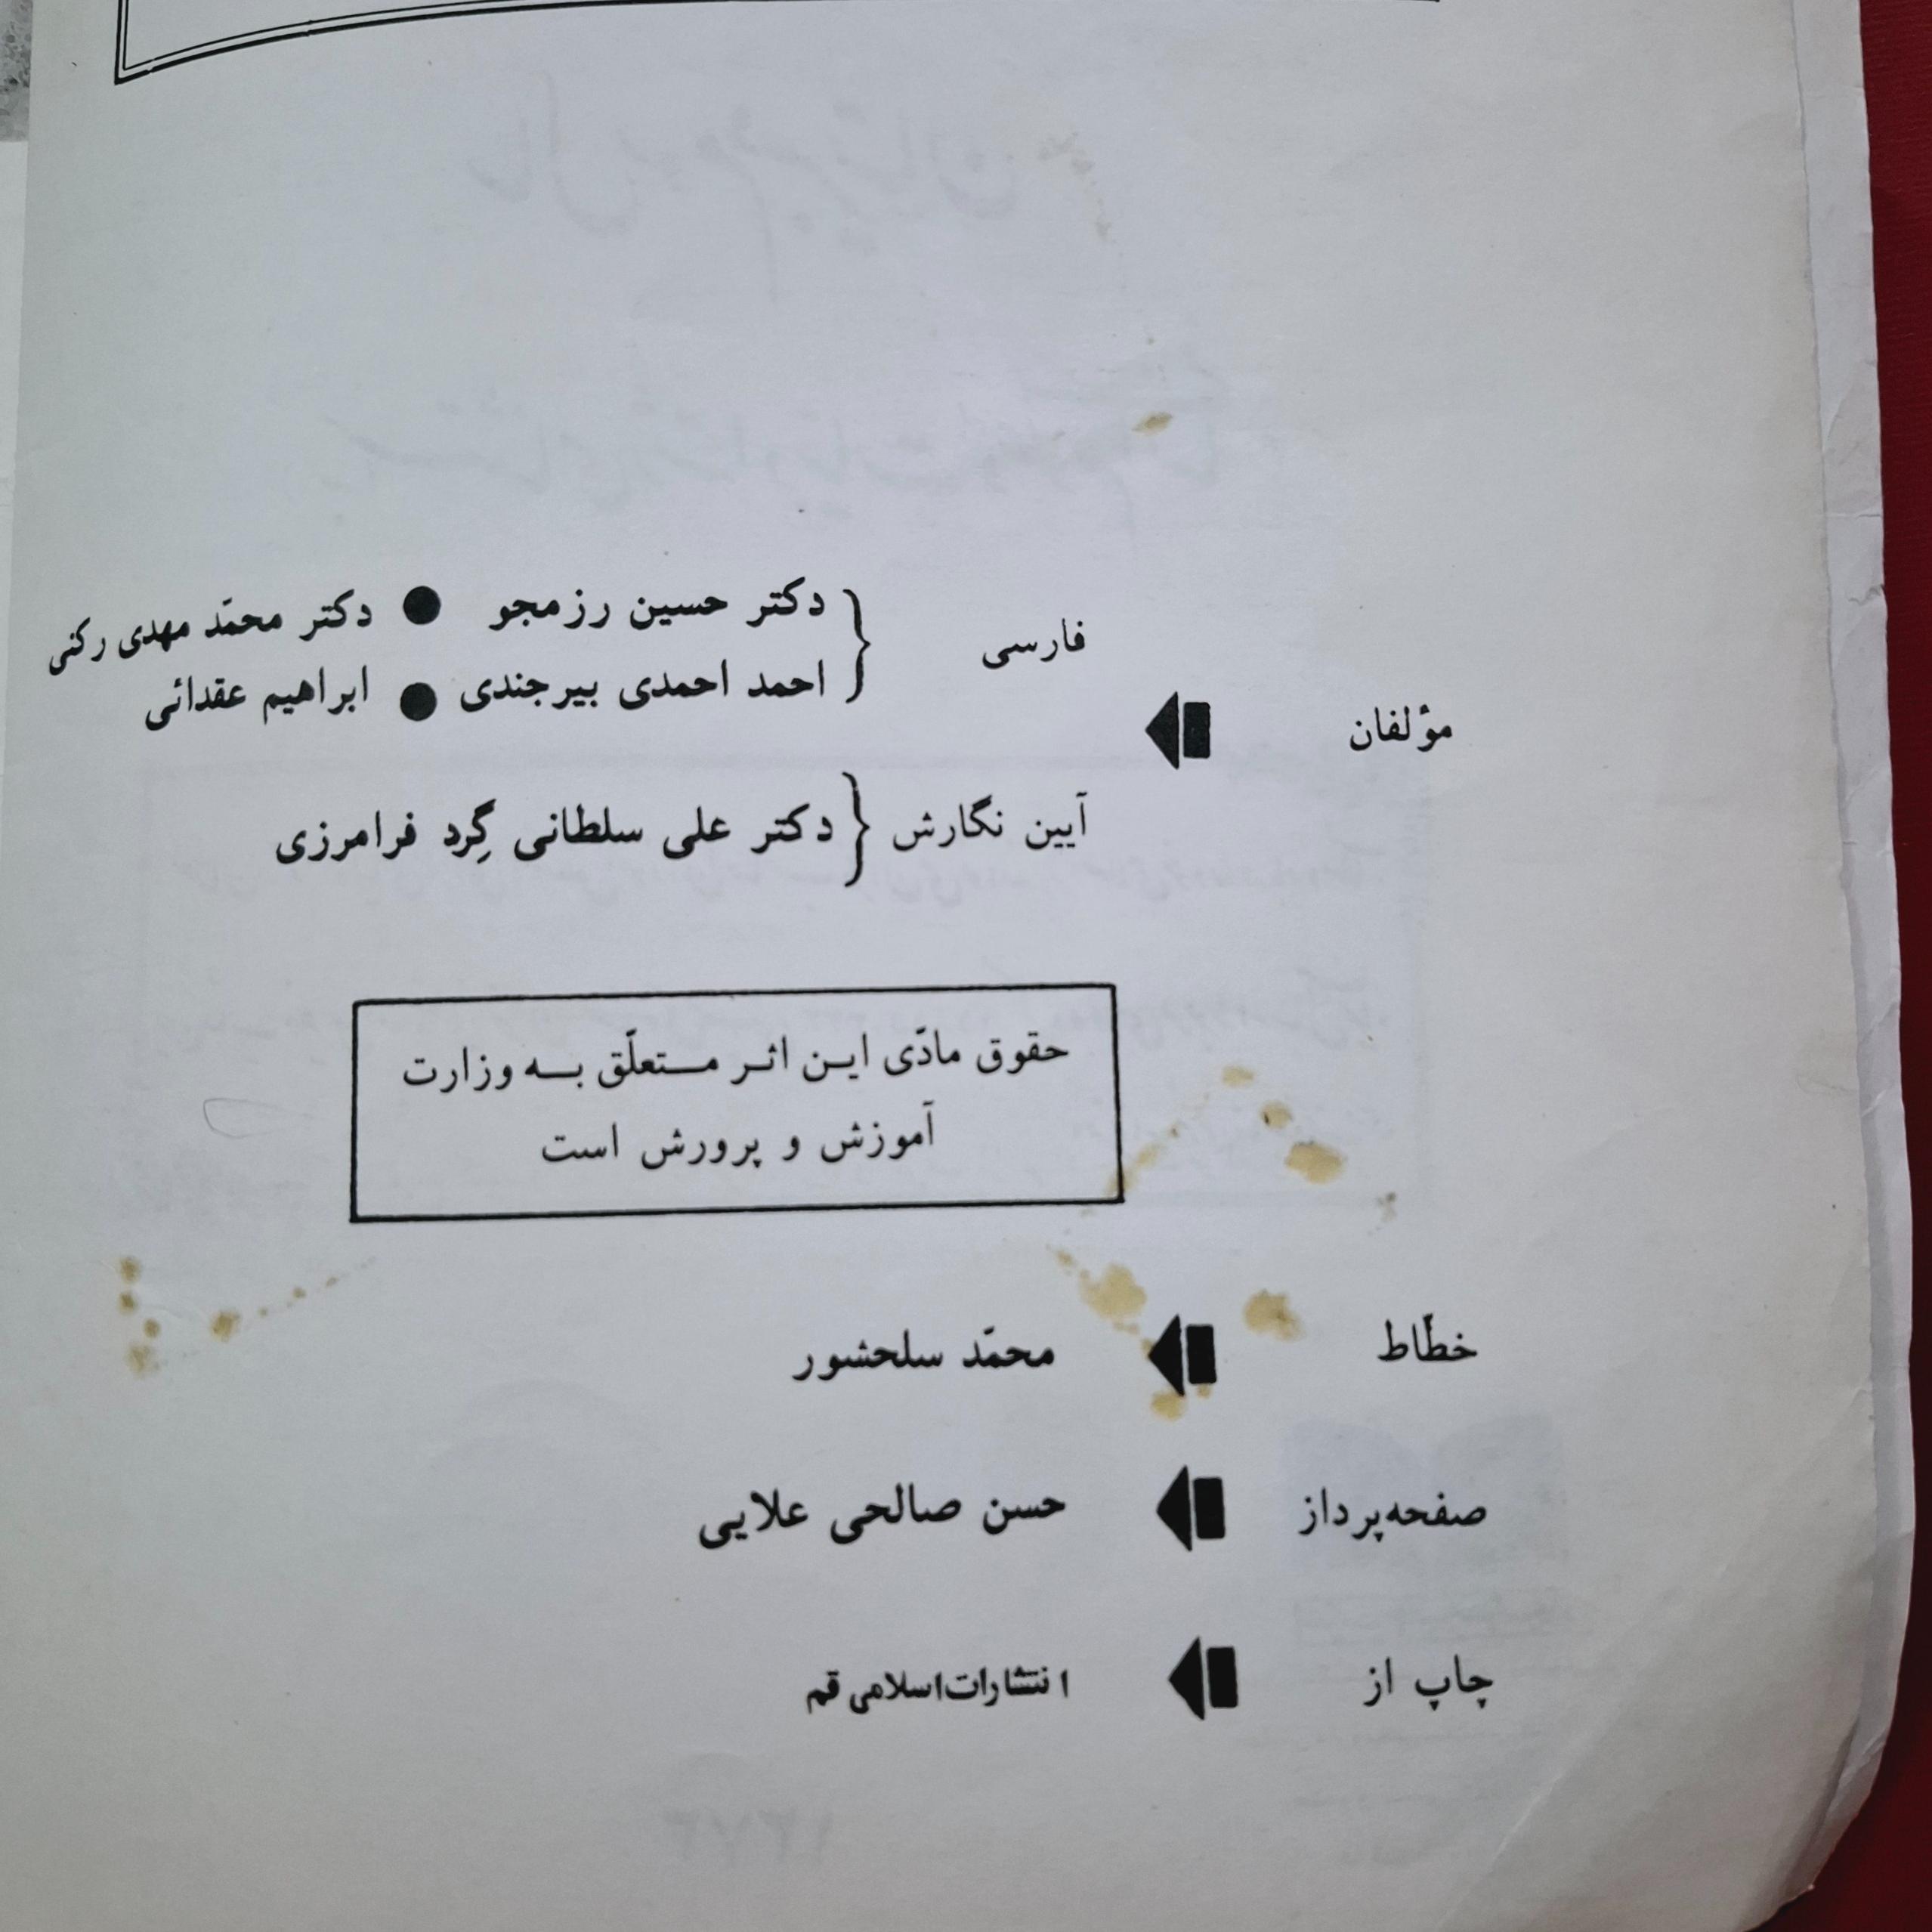 فارسی
دکتر حسین رزمجو ● دکتر محمّد مهدی رکنی
احمد احمدی بیرجندی ● ابراهیم عقدائی
مؤلفان
آیین نگارش { دکتر علی سلطانی گِرد فرامرزی
حقوق مادّی این اثر متعلّق به وزارت
آموزش و پرورش است
خطّاط محمّد سلحشور
صفحه‌پرداز حسن صالحی علایی
چاپ از انتشارات اسلامی قم